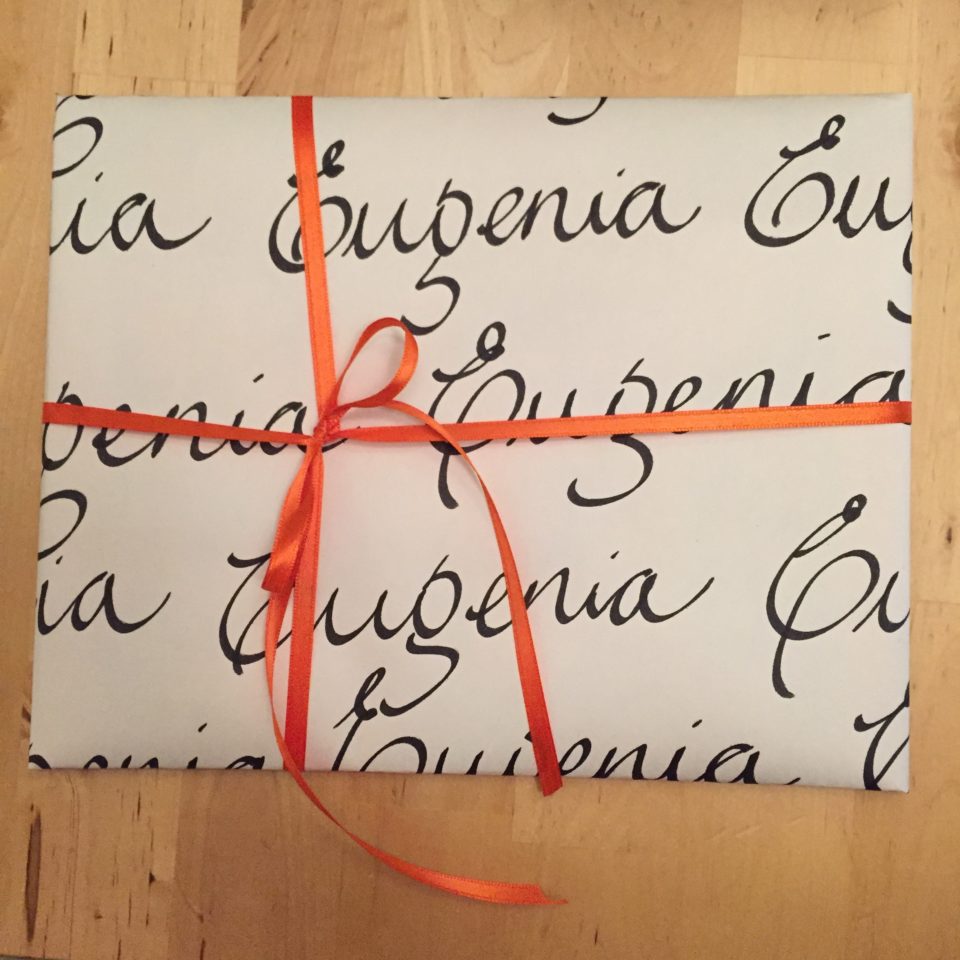 ia Eugenia Eu
genia Eugenia
ia Eugenia Eu
enia Eugenia